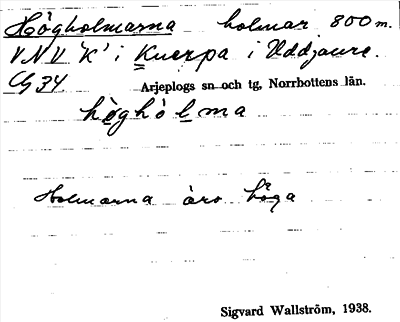 Högholmarna holmar 800 m.
VNV 'K' i Kuerpa i Uddjaure.
Cg 34. Arjeplogs sn och tg, Norrbottens län.
hö̀ghò lma
Holmarna äro höga
Sigvard Wallström, 1938.